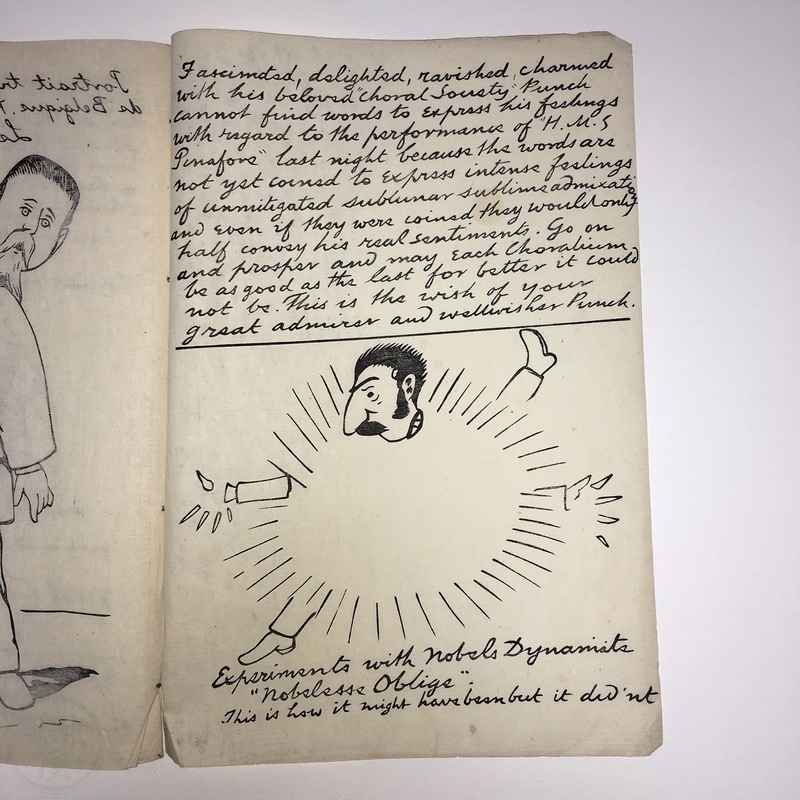 Fascinated, delighted, ravished, charmed
with his beloved "Choral Society" Punch
cannot find words to express his feelings
with regard to the performance of "H.M.S
Pinafore" last night because the words are
not yet coined to express intense feelings
of unmitigated sublunar sublime admixation
and even if they were coined they would only
half convey his real sentiments. Go on
and prosper and may each Choralium
be as good as the last for better it could
not be. This is the wish of your
great admirer and wellwisher Punch.
Experiments with Nobels Dynamite
"Nobelesse Oblige".
This is how it might have been but it did'nt
Portrait
de Belgique.